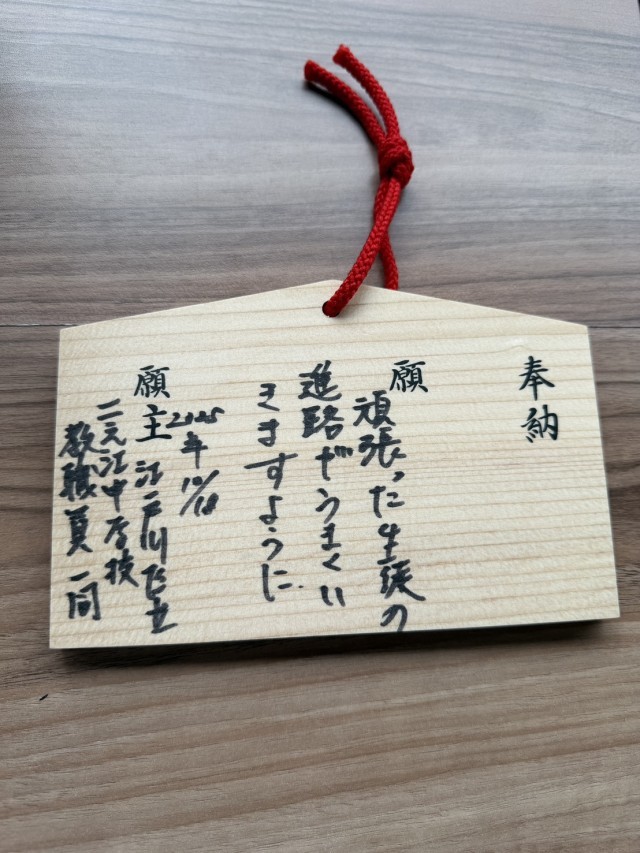 奉納
願
頑張った生徒の
進路がうまくい
きますように
2025年10/18
願主 江戸川区立
二之江中学校
教職員一同